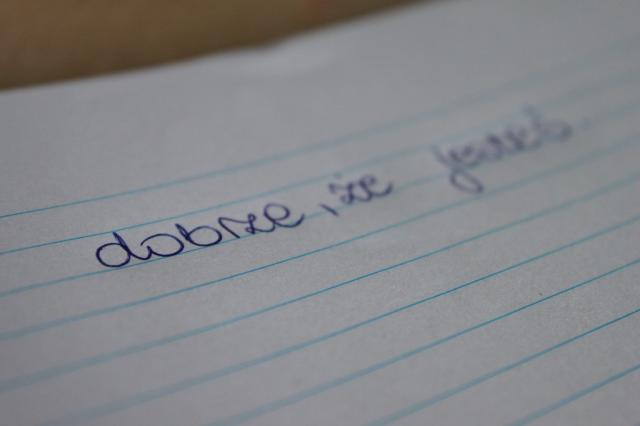 dobrze, że jesteś.